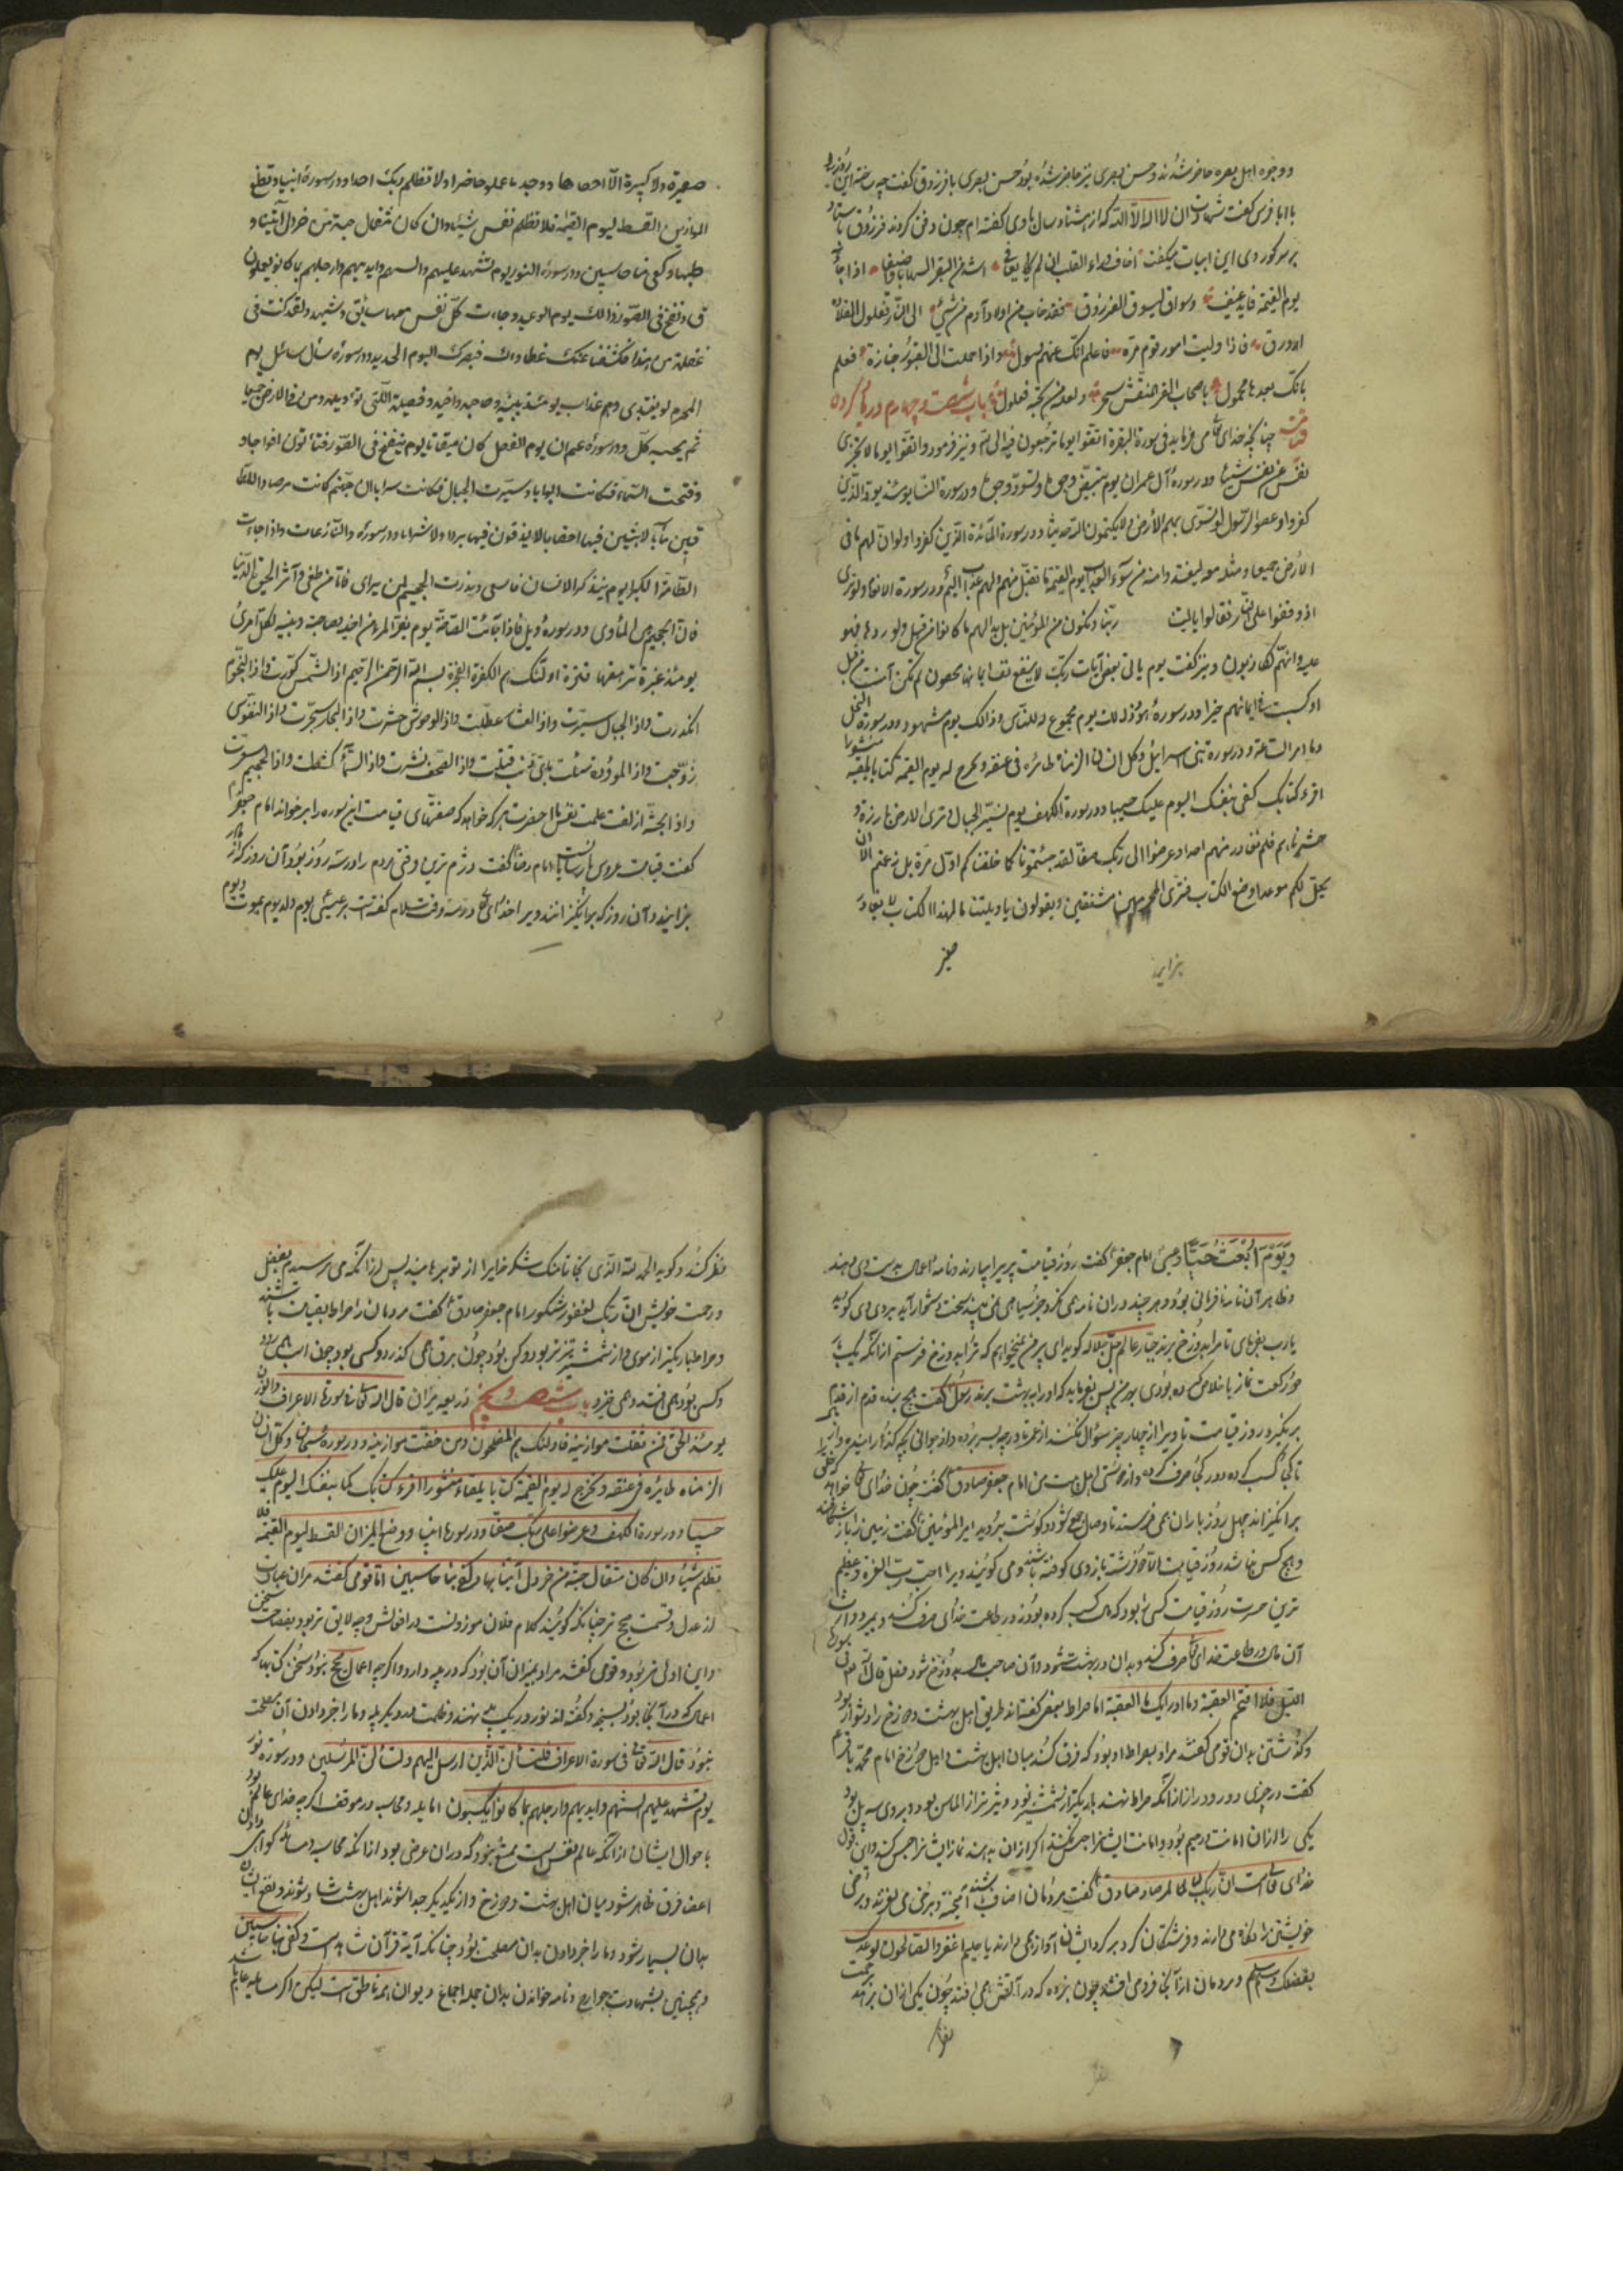 و وجوه اهل بصره حاضر شدند و حسن بصری نیز حاضر شده بود حسن بصری با فرزدق گفت چه ساخته این روز را
یا ابا فرس گفت شهادت ان لا اله الا الله که از هشتاد سال باز می گفته ام چون دفن کردند فرزدق بایستاد
بر سر کور وی این ابیات میگفت اخاف وراء القبر ان لم یعافنی اشد من القبر التهابا و اضیقا اذا جاء
یوم القیمة قاید عنیف و سواق یسوق الفرزدق فقد خاب من اولاد آدم من مشی الی النار مغلول القلاده
ازرق فاذا ولیت امور قوم مرة فاعلم انک عنهم مسول و اذا حملت الی القبور جنازة فعلم
بانک بعدها محمول یا صاحب القبر المنقش سطحه و لعله من تحته مغلول باب شصت و چهارم در یاد کردن
قیامت چنانکه خدای تعالی می فرماید فی سورة البقرة اتقوا یوما ترجعون فیه الی الله و نیز فرمود و اتقوا یوما لا تجزی
نفس عن نفس شیئا و در سورة آل عمران یوم تبیض وجوه و تسود وجوه و در سورة النساء یومئذ یود الذین
کفروا و عصوا الرسول لو تسوی بهم الأرض و لا یکتمون الله حدیثا و در سورة المائدة ان الذین کفروا لو ان لهم ما فی
الارض جمیعا و مثله معه لیفتدوا به من سوء العذاب یوم القیمة ما تقبل منهم و لهم عذاب الیم و در سورة الانعام و لو تری
اذ وقفوا علی النار فقالوا یا لیت ربنا و نکون من المؤمنین بل بدا لهم ما کانوا من قبل و لو ردوا فهو
علیه و انهم لکاذبون و نیز گفت یوم یأتی بعض آیات ربک لا ینفع نفسا ایمانها لم تکن آمنت من قبل
او کسبت فی ایمانهم خیرا و در سورة هود ذلک یوم مجموع له الناس و ذالک یوم مشهود و در سورة النحل
و ما امر الساعة و در سورة بنی اسرائیل و کل انسان الزمناه طائره فی عنقه و نخرج له یوم القیمة کتابا یلقیه منشورا
اقرء کتابک کفی بنفسک الیوم علیک حسیبا و در سورة الکهف یوم نسیر الجبال و تری الارض بارزة و
حشرناهم فلم نغادر منهم احدا و عرضوا الی ربک صفا لقد جئتمونا کما خلقناکم اول مرة بل زعمتم الن
نجعل لکم موعدا و وضع الکتاب فتری المجرمین مشفقین و یقولون یا ویلتنا ما لهذا الکتاب لا یغادر
صغیر
صغیرة و لا کبیرة الا احصاها و وجدوا ما عملوا حاضرا و لا تظلم ربک احدا و در سورة انبیا و نضع
الموازین القسط لیوم القیمة فلا تظلم نفس شیئا و ان کان مثقال حبة من خردل آتینا و
طبها و کفی بنا حاسبین و در سورة النور یوم تشهد علیهم و السنتهم و ایدیهم و ارجلهم بما کانوا یعملون
ق و نفخ فی الصور ذالک یوم الوعید و جاءت کل نفس معها سائق و شهید و لقد کنت فی
غفلة من هذا فکشفنا عنک غطاءک فبصرک الیوم الحدید و در سورة سئل سائل یوم
المجرم لو یفتدی و هم عذاب یومئذ ببنیه و صاحبه و اخیه و فصیلته اللتی تؤویه و من فی الارض جمیعا
ثم یحب کل و در سورة عم ان یوم الفصل کان میقاتا یوم ینفخ فی الصور فتأتون افواجا و
و فتحت السماء فکانت ابوابا و سیرت الجبال فکانت سرابا ان جهنم کانت مرصادا للطا
غین مآبا لابثین فیها احقابا لا یذقون فیها بردا و لا شرابا و در سورة و النازعات و اذا جاءت
الطامة الکبرا یوم یتذکر الانسان ما سعی و برزت الجحیم لمن یرای فاما من طغی و آثر الحیوة الدنیا
فان الجحیم هی المأوی و در سورة ویل فاذا جائت الصاخة یوم یفر المرء من اخیه و صاحبته و بنیه لکل امرئ
یومئذ غبرة ترهقها قترة اولئک هم الکفرة الفجرة بسم الله الرحمن الرحیم اذا الشمس کورت و اذا النجوم
انکدرت و اذا الجبال سیرت و اذا العشار عطلت و اذا الوحوش حشرت و اذا البحار سجرت و اذا النفوس
زوجت و اذا الموؤدة سئلت بای ذنب قتلت و اذا الصحف نشرت و اذا السماء کشطت و اذا الجحیم سعرت
و اذا الجنة ازلفت علمت نفس ما احضرت هر که خواهد که صفتهای قیامت این سوره را برخواند امام جعفر
گفت قیامت عروس پارسایانست امام رضا گفت دژم ترین وقتی مردم را در سه روز بود آن روز که از مادر
بزایند و آن روز که برانگیزانند و بر خدای تعالی در سه وقت سلام گفته است بر عیسی یوم ولد یوم یموت و یوم
بزاید
و یوم ابعث حیا و عیسی امام جعفر گفت روز قیامت پیر را بیارند و نامه اعمال بدست وی دهند
و ظاهر آن نامه نافرمانی بود و هر چند در آن نامه می نگرد جز سیاهی نمی بیند سخت دشوار آید بر وی وی گوید
یا رب بفرمای تا مرا بدوزخ برند جبار عالم جل جلاله گوید ای پیر من نمیخواهم که ترا بدوزخ فرستم از آنکه یک بار
دو رکعت نماز باخلاص کرده بودی بهر من پس بفرماید که او را به بهشت برند رسول گفت هیچ بنده قدم از قدم
بر نگیرد روز قیامت تا ویرا از چهار چیز سؤال نکنند از عمر تا در چه بسر برده و از جوانی بچه گذارانیده و از مال
تا کجا کسب کرده و در کجا صرف کرده و از دوستی اهل بیت من امام جعفر صادق گفت چون خدای تعالی خواهد که خلق
برانگیزاند چهل روز باران همی فرستد تا وصل جمع شود و گوشت بروید امیر المؤمنین گفت زمین را باز شکافند
و هیچ کس نباشد روز قیامت الا دو فرشته بازوی او گرفته باشند و می گویند ویرا اجب رب العزة و عظیم
ترین حسرت روز قیامت کسی را بود که مال کسب کرده بود نه در طاعت خدای صرف کند و بمیرد و وارث
آن مال در طاعت خدای تعالی صرف کند و بدان در بهشت شود و آن صاحب مال بدوزخ شود فصل قال الله تعالی فی سورة
البلد فلا اقتحم العقبة و ما ادریک ما العقبة اما صراط بعضی گفته اند طریق اهل بهشت و دوزخ راه دشوار بود
و گذشتن بدان قومی گفتند مراد بصراط او بود که فرق کند میان اهل بهشت و اهل دوزخ امام محمد باقر
گفت در خبری دور و دراز از آنکه صراط نهند باریکتر از شمشیر بود و تیزتر از الماس بود و بر وی سه پل بود
یکی را از آن امانت و رحم بود و امانت ایشان را حبس نکنند اگر از آن برهند نماز ایشان را حبس کند و این قول
خدای تعالی است ان ربک لبالمرصاد صادق گفت مردمان اصناف باشند آمیخته و برخی می لغزند و برخی
خویشتن را نگاه می دارند و فرشتگان گرد بر گرد ایشان آواز همی دارند یا حلیم اغفر و اصفح و عد
بفضلک و سلم و مردمان از آنجا فرو می افتند چون پروه که در آتش همی افتند چون یکی از آن برحمت
نظر
نظر کند و گوید الحمد لله الذی نجانا منک شکر خدایرا از تو برهانید پس از آنکه می ترسیدم بفضل
و رحمت خویش ان ربک لغفور شکور امام جعفر صادق گفت مردمان را صراط بقیامت باشند
و صراط باریکتر از موی و از شمشیر تیزتر بود و کس بود چون برق همی گذرد و کسی بود چون اسب همی رود
و کسی بود همی افتد و همی خیزد باب شصت و پنجم در یعبه میزان قال الله تعالی فی سورة الاعراف و الوزن
یومئذ الحق فمن ثقلت موازینه فاولئک هم المفلحون و من خفت موازینه و در سورة سبحان و کل انسان
الزمناه طایره فی عنقه و نخرج له یوم القیمة کتابا یلقاه منشورا اقرء کتابک کفا بنفسک الیوم علیک
حسیبا و در سورة الکهف و عرضوا علی ربک صفا و در سورة انبیا و وضع المیزان القسط لیوم القیمة فلا
تظلم شیئا و ان کان مثقال حبة من خردل اتینا بها و کفی بنا حاسبین اما قومی گفتند میزان عبارت
از عدل و قسمت صحیح تر چنانکه گویند کلام فلان موزونست و افعالش و چه لایق تر بود بفصاحت سخن
و این اولی تر بود و قومی گفتند مراد بمیزان آن بود که در پله دارد و اگرچه اعمال صحیح نبود سخن کتابها که
اعمال در آنجا بود بسنجد و گفته اند نور در یک پله نهند و ظلمت در دیگر پله و ما را خبر دادن آن مصلحت
نبود قال الله تعالی فی سورة الاعراف فلنسألن الذین ارسل الیهم و لنسألن المرسلین و در سورة نور
یوم تشهد علیهم السنتهم و ایدیهم و ارجلهم بما کانوا یکسبون اما پله و محاسب در موقف اگرچه خدای عالم بود
باحوال ایشان از آنکه عالم بنفس است ممتنع نبود که در آن غرض بود از آنکه محاسب و مسائله گواهی دادن
اعضا فرق ظاهر شود میان اهل بهشت و دوزخ و از یکدیگر جدا شوند اهل بهشت شاد شوند و نفع ایشان
بدان بسیار شود و ما را خبر دادن بدان مصلحت بود چنانکه آیه قرآن شاهد است و کفی بنا حاسبین
و همچنین بشهادت جوارح و نامه خواندن بدان جمله اجماع و دیوان همه ناطق است لیکن اگر مسایله عام باشد